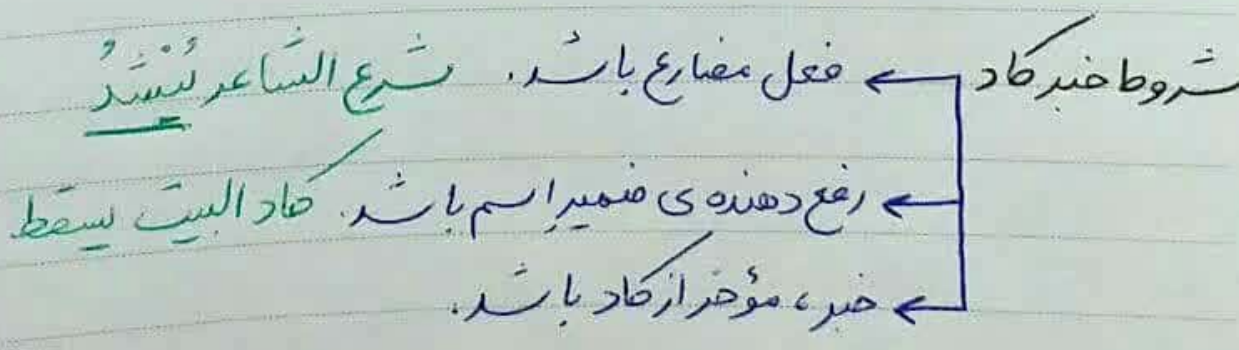 شروط خبر کاد ← فعل مضارع باشد. شرع الشاعر يُنْشِدُ
← رفع دهنده ی ضمیرِ اسم باشد. کاد البیت یسقط
← خبر، مؤخر از کاد باشد.